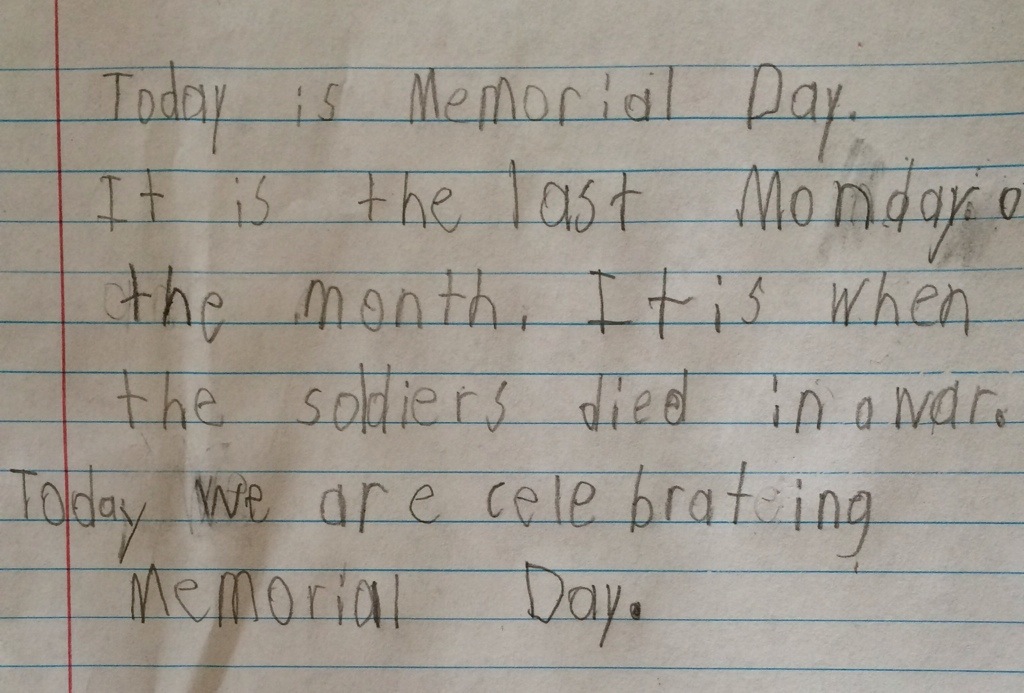 Today is Memorial Day.
It is the last Monday o
the month. It is when
the soldiers died in a war.
Today we are celebrating
Memorial Day.